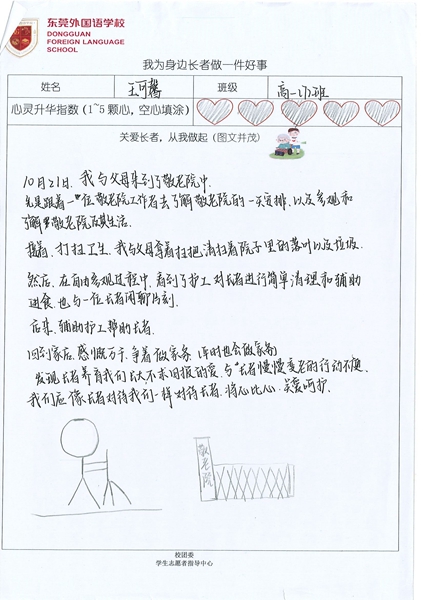 东莞外国语学校
DONGGUAN
FOREIGN LANGUAGE
SCHOOL
我为身边长者做一件好事
姓名 王可馨 班级 高一(7)班
心灵升华指数(1~5颗心,空心填涂)
关爱长者,从我做起(图文并茂)
10月21日,我与父母来到了敬老院中.
先是跟着一位敬老院工作者去了解敬老院的一天安排,以及参观和
了解敬老院及其生活.
接着,打扫卫生,我与父母拿着扫把清扫着院子里的落叶以及垃圾.
然后,在自由参观过程中,看到了护工对长者进行简单清理和辅助
进食.也与一位长者闲聊片刻.
后来,辅助护工帮助长者.
回到家后,感慨万千,争着做家务(平时也会做家务)
发现长者养育我们 不求回报的爱,与长者慢慢变老的行动不便.
我们应像长者对待我们一样对待长者.将心比心,关爱呵护.
敬老院
校团委
学生志愿者指导中心